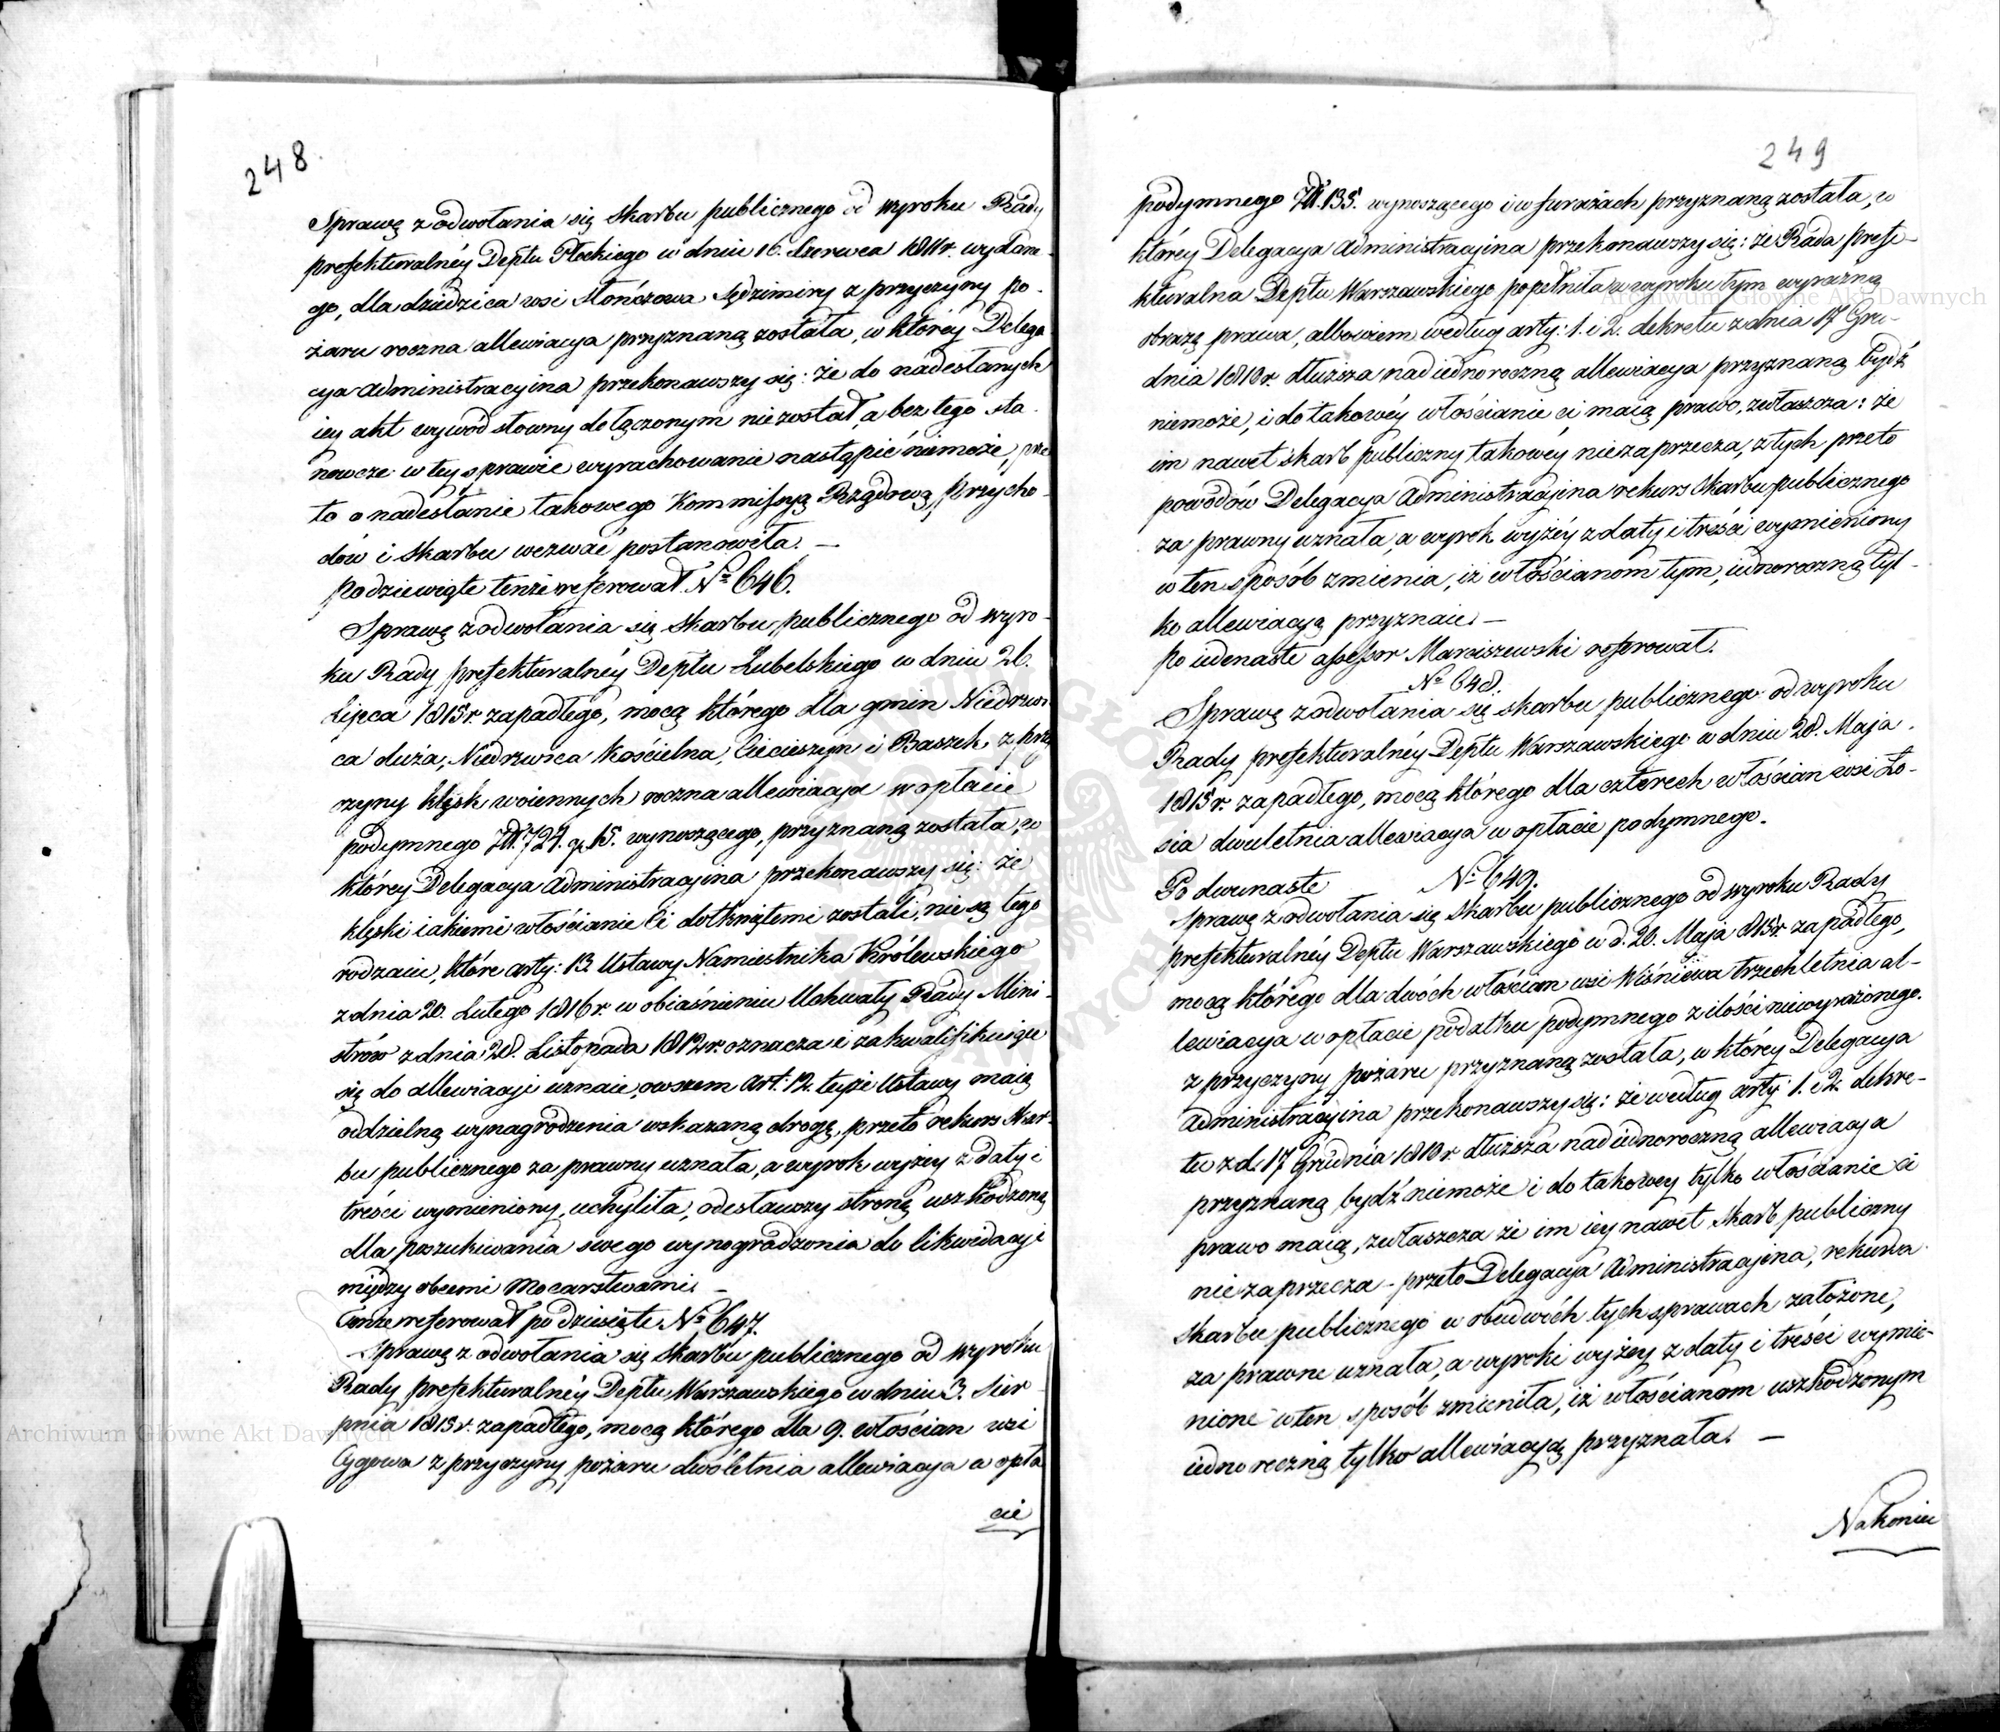 248.
Sprawę z odwołania się skarbu publicznego od wyroku Rady
prefekturalnéy Deptu Płockiego w dniu 16. Czerwca 1811r. wydane-
go, dla dziedzica wsi Stończowa Sędzimiry z przyczyny po-
żaru roczna allewiacya przyznaną została, w któréy Delega
cya Administracyina przekonawszy się: że do nadesłanych
iey akt wywód słowny dołączonym nie został, a bez tego sta-
nowcze w tey sprawie wyrachowanie nastąpić niemoże, prze
to o nadesłanie takowego Kommissyą Rządową Przycho-
dów i Skarbu wezwać postanowiła. —
Podziewiąte tenże referował. No 646.
Sprawę z odwołania się Skarbu publicznego od wyro-
ku Rady prefekturalnéy Deptu Lubelskiego w dniu 26.
Lipca 1815r. zapadłego, mocą którego dla gmin Niedrzwi-
ca duża, Niedrzwica Kościelna, Ciecieszyn i Baszek, z przy
czyny klęsk woiennych roczna allewiacya w opłacie
podymnego Zł. 724. gr. 15. wynoszącego, przyznaną została, w
którey Delegacya Administracyina przekonawszy się: że
klęski iakiemi włościanie ci dotkniętemi zostali, nie są tego
rodzaiu, które arty: 13. Ustawy Namiestnika Królewskiego
z dnia 20. Lutego 1816r. w obiaśnieniu Uchwały Rady Mini-
strów z dnia 28. Listopada 1812r. oznacza i zakwalifikuiące
się do allewiacyi uznaie, owszem Art: 12. teyże Ustawy maią
oddzielną wynagrodzenia wskazaną drogę, przeto rekurs Skar-
bu publicznego za prawny uznała, a wyrok wyżey z daty i
treści wymieniony, uchyliła, odesławszy stronę uszkodzoną
dla poszukiwania swego wynagrodzenia do likwidacyi
między obcemi Mocarstwami. —
Tenże referował po dziesiąte No 647.
Sprawę z odwołania się Skarbu publicznego od wyroku
Rady prefekturalnéy Deptu Warszawskiego w dniu 3. Sier-
pnia 1815r. zapadłego, mocą którego dla 9. włościan wsi
Cygowa z przyczyny pożaru dwóletnia allewiacya w opła
cie
249
podymnego Zł. 135. wynoszącego i w furażach przyznaną została, w
któréy Delegacya Administracyina przekonawszy się: że Rada prefe-
kturalna Deptu Warszawskiego popełniła w wyroku tym wyraźną
obrazę prawa, albowiem według arty: 1. i 2. dekretu z dnia 17 Gru-
dnia 1810r. dłuższa nad iednoroczną allewiacya przyznaną bydź
niemoże, i do takowéy włościanie ci maią prawo, zwłaszcza: że
im nawet skarb publiczny takowéy niezaprzecza, z tych przeto
powodów Delegacya Administracyina rekurs Skarbu publicznego
za prawny uznała, a wyrok wyżéy z daty i treści wymieniony
w ten sposób zmienia, iż włościanom tym, iednoroczną tyl-
ko allewiacyą przyznaie. —
Po iedenaste assessor Marciszewski referował.
No 648.
Sprawę z odwołania się skarbu publicznego od wyroku
Rady prefekturalnéy Deptu Warszawskiego w dniu 28. Maja
1815r. zapadłego, mocą którego dla czterech włościan wsi Ło-
sia dwuletnia allewiacya w opłacie podymnego.
Po dwunaste No 649.
Sprawę z odwołania się Skarbu publicznego od wyroku Rady
prefekturalnéy Deptu Warszawskiego w d. 20. Maja 1815r. zapadłego,
mocą którego dla dwóch włościan wsi Wiśniewa trzechletnia al-
lewiacya w opłacie podatku podymnego z ilości niewyrażonego.
z przyczyny pożaru przyznaną została, w którey Delegacya
Administracyina przekonawszy się: że według arty: 1. i 2. dekre-
tu z d. 17 Grudnia 1810r. dłuższa nad iednoroczną allewiacya
przyznaną bydź niemoże i do takowey tylko włościanie ci
prawo maią, zwłaszcza że im iey nawet Skarb publiczny
niezaprzecza - przeto Delegacya Administracyina, rekursa
Skarbu publicznego w obudwóch tych sprawach założone,
za prawne uznała, a wyroki wyżey z daty i treści wymie-
nione w ten sposób zmieniła, iż włościanom uszkodzonym
iednoroczną tylko allewiacyą przyznała. —
Nakoniec
Archiwum Główne Akt Dawnych
Archiwum Główne Akt Dawnych